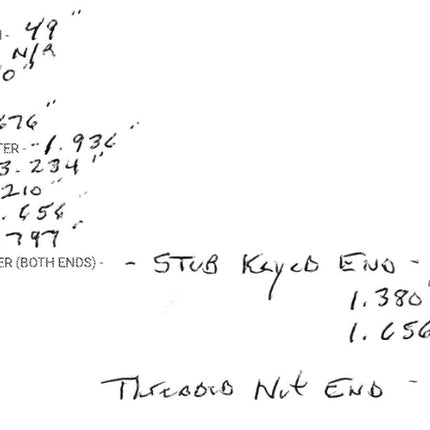 - 49"
N/A
0"
676"
TER - - 1.936"
3.234"
210"
.656"
.797"
ER (BOTH ENDS) - - STUB KEYED END -
1.380"
1.656
THREADED NUT END -